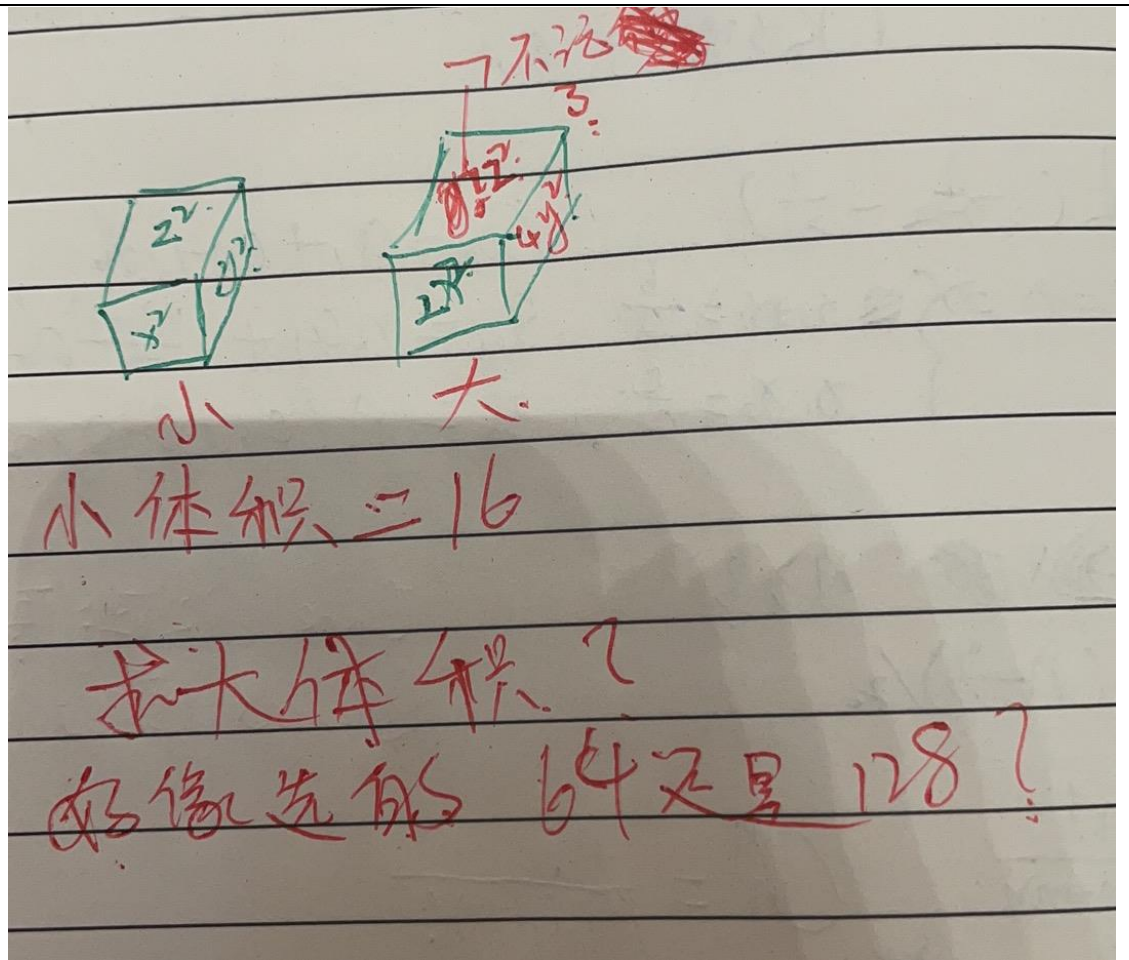 不记
3.
z²
y²
x²
小
z²
4y²
大.
小体积=16
求大体积?
好像选的 64还是128?